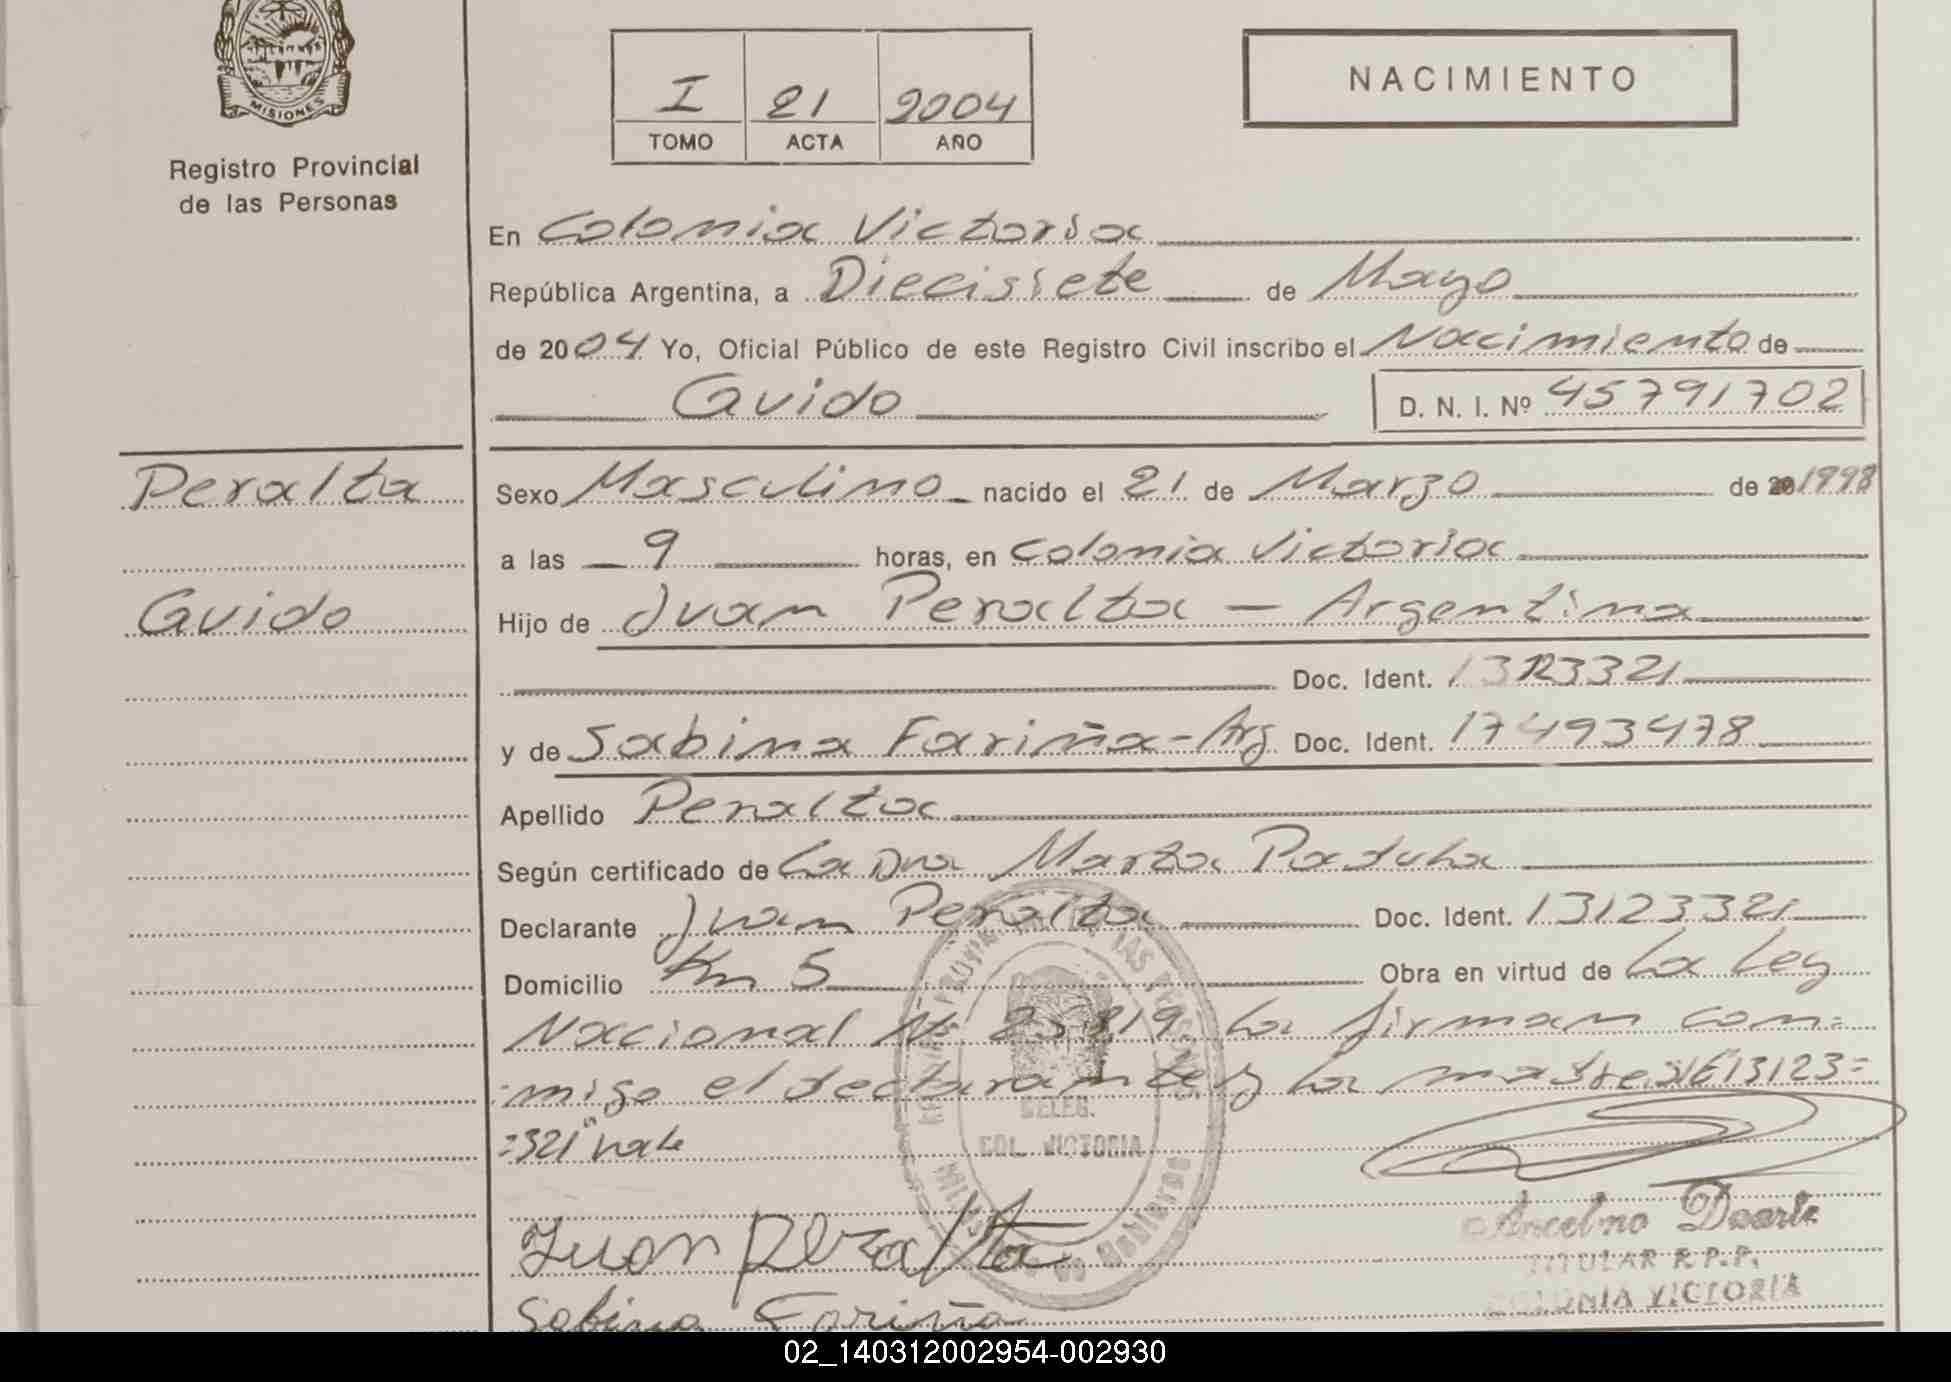 MISIONES
Registro Provincial
de las Personas
I 21 2004
TOMO ACTA AÑO
NACIMIENTO
En Colonia Victoria
República Argentina, a Diecisiete de Mayo
de 2004 Yo, Oficial Público de este Registro Civil inscribo el Nacimiento de
Guido D. N. I. Nº 45791702
Peralta
Guido
Sexo Masculino nacido el 21 de Marzo de 20 1998
a las 9 horas, en Colonia Victoria
Hijo de Juan Peralta - Argentina
Doc. Ident. 13123321
y de Sabina Fariña - Arg Doc. Ident. 17493478
Apellido Peralta
Según certificado de La Dra Marta
Declarante Juan Peralta Doc. Ident. 13123321
Domicilio Km 5 Obra en virtud de La Ley
Nacional Nº 25819 La firman con=
=migo el declarante y la madre. S/C 13123=
=321" vale
DELEG.
COL. VICTORIA
Juan Peralta
Sabina Fariña
Ancelmo Duarte
TITULAR R.P.P.
COLONIA VICTORIA
02_140312002954-002930